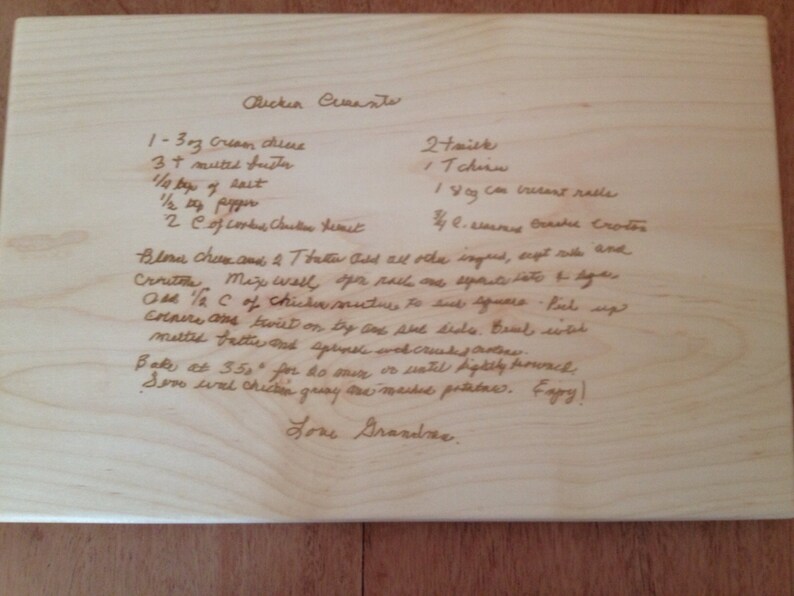 Chicken Cresants
1 - 3 oz cream cheese
3 T melted butter
1/4 tsp of salt
1/2 tsp pepper
2 C of cooked chicken breast
2 T milk
1 T chives
1 8 oz can cresant rolls
3/4 C. seasoned crushed croutons
Blend cheese and 2 T butter add all other ingred, except rolls and
croutons. Mix well, open rolls and seperate into 4 squares
add 1/2 C of chicken mixture to each square. Pick up
corners and twist on top and seal sides. Brush with
melted butter and sprinkle with crushed croutons.
Bake at 350° for 20 min or until lightly browned.
Serve with chicken gravy and mashed potatoes. Enjoy!
Love Grandma.